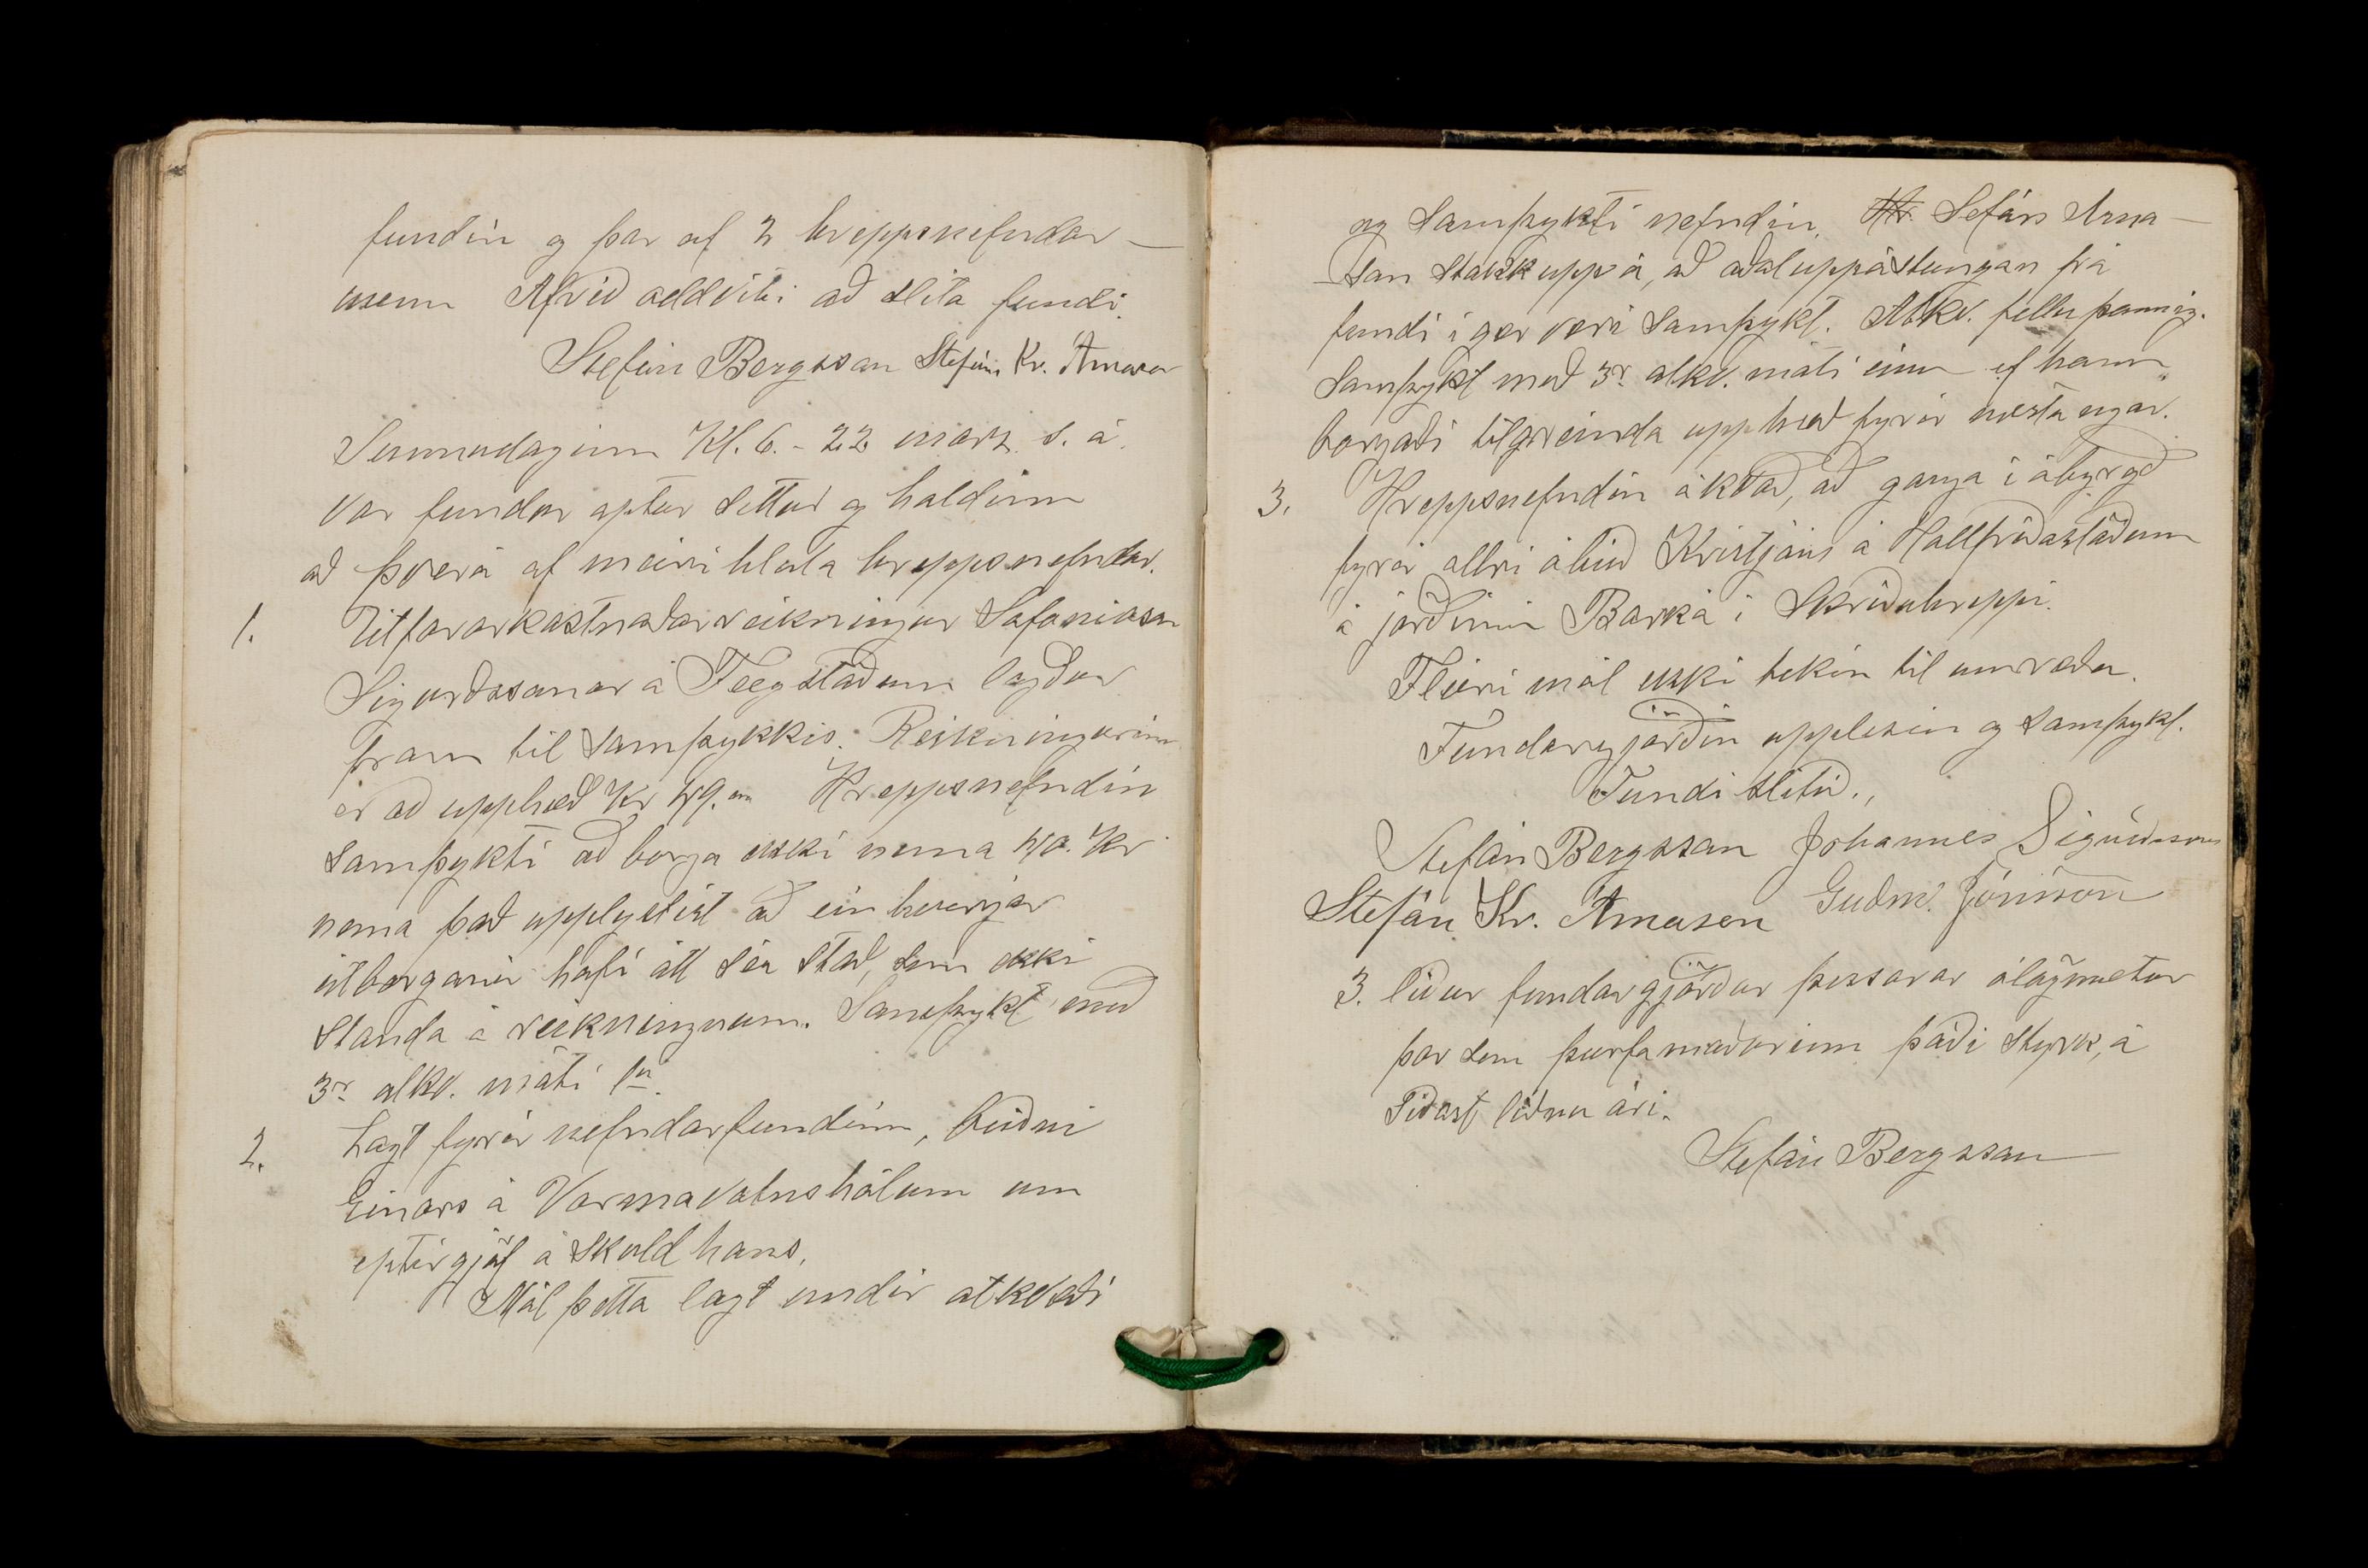 fundin og þar af 2 hreppsnefndar-
menn Afrið aeldviti að slíta fundi.
Stefán Bergsson Stefán Kr. Árnason
Sunnudaginn Kl. 6. - 22 marz s. á.
var fundur aptur settur og haldinn
að Þverá af meiri hluta hreppsnefndar.
1. Útfararkostnaðarreikningur Sofoniasar
Sigurðssonar á Flögustöðum lagður
fram til samþykkis. Reikningurinn
er að upphæð Kr 49. Hreppsnefndin
samþykti að borga ekki nema 40. Kr
nema það upplýstist að einhverjar
útborganir hafi átt sér stað, sem ekki
standa á reikningnum. Samþykt með
3r atkv. móti 1u
2. Lagt fyrir nefndarfundinn, beiðni
Einars á Varmavatnshólum um
eptirgjöf á skuld hans.
Mál þetta lagt undir atkvæði
og samþykti nefndin. Sefán Árna-
son stakk upp á, að aðaluppástungan frá
fundi í gær væri samþykt. Atkv. fellu þannig.
Samþykt með 3r atkv. móti einu ef hann
borgaði tilgreinda upphæð fyrir næsta nyar.
3. Hreppsnefndin ákvað, að ganga í ábyrgð
fyrir allri ábúð Kristjáns á Hallfríðarstöðum
á jörðinni Barká í Skriðuhreppi.
Fleiri mál ekki tekin til umræðu.
Fundargjörðin upplesin og samþykt.
Fundi slitið.,
Stefán Bergsson Johannes Sigurðsson
Stefán Kr. Árnason Guðm. Jónsson
3. liður fundargjörðar þessarar ólögmætur
þar sem þurfamaðurinn þáði styrk, á
síðast liðnu ári.
Stefán Bergsson